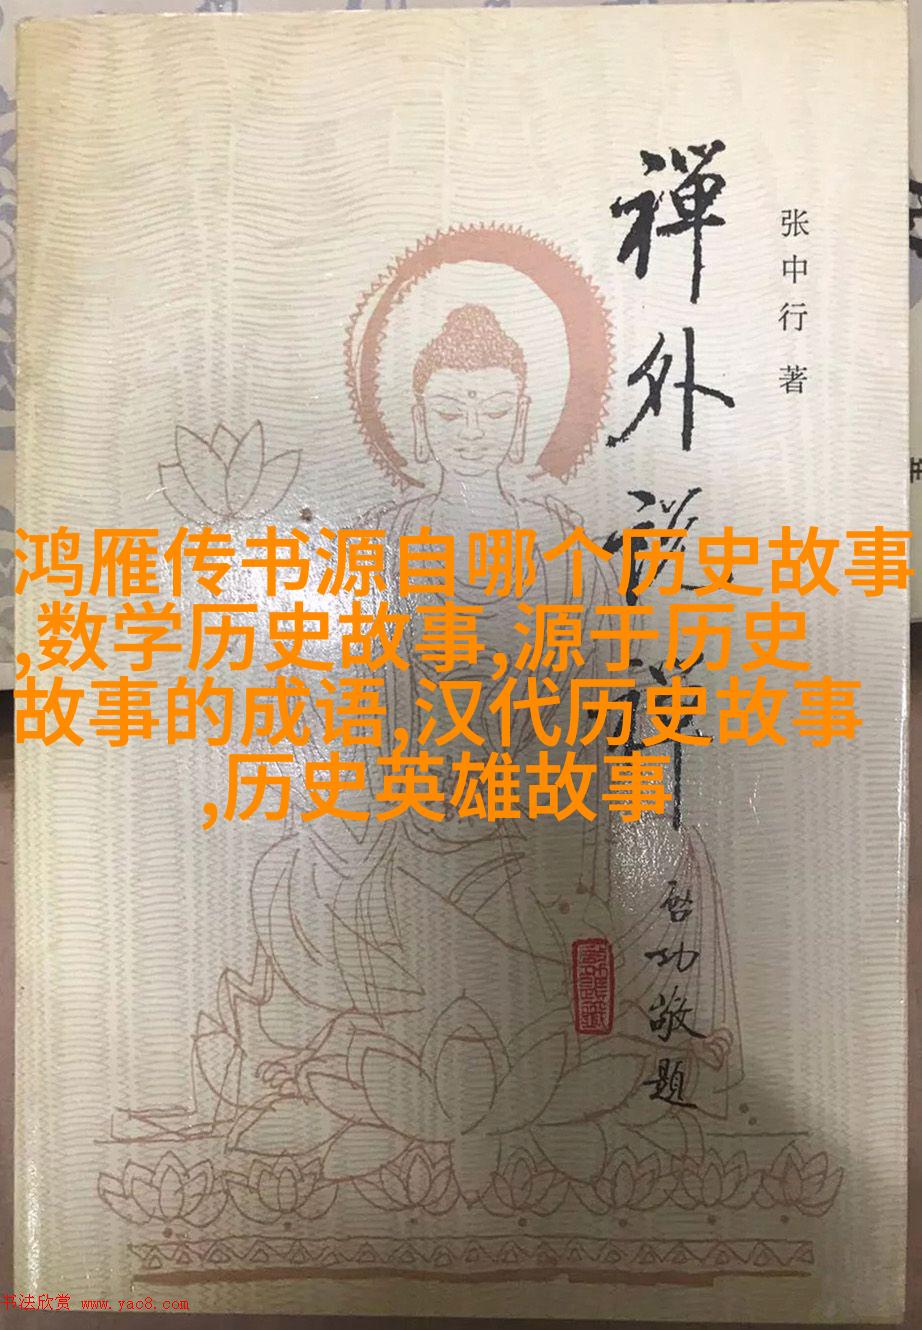 禪外說禪
张中行 著
鸿雁传书源自哪个历史故事
,数学历史故事,源于历史
故事的成语,汉代历史故事
,历史英雄故事
启功敬题
书法欣赏 www.yac8.com